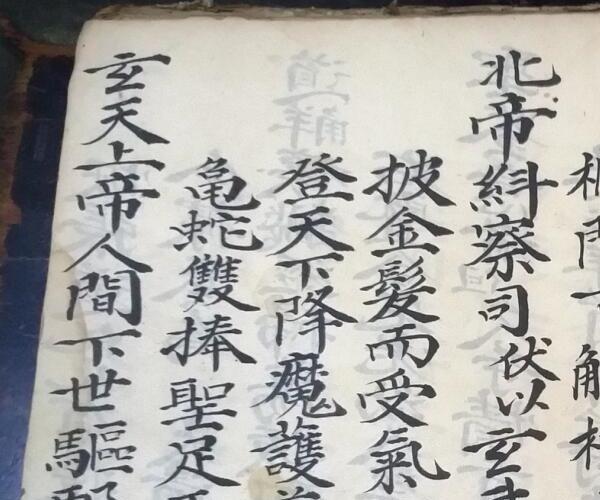 北帝紏察司伏以玄
披金髮而受氣
登天下降魔護
亀蛇雙捧聖足
玄天上帝人間下世驅